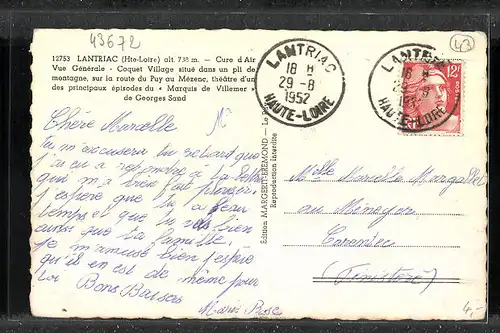 43672
43
12753 LANTRIAC (Hte-Loire) alt. 738 m. — Cure d'Air
Vue Générale - Coquet Village situé dans un pli de
montagne, sur la route du Puy au Mézenc, théâtre d'un
des principaux épisodes du « Marquis de Villemer »
de Georges Sand
LANTRIAC
18 H
29-8
1952
HAUTE-LOIRE
LANTRIAC
18 H
29-8
1952
HAUTE-LOIRE
12F
Chère Marcelle
Tu m'excusera du retard que
j'ai eu a repondre a ta lettre
qui m'a bien fait plaisir
j'espère que tu a beau
temps et que tu vas bien
ainsi que ta famille.
Je m'amuse bien j'espère
qu'il en est de même pour
toi Bons Baisers
Marie Rose
Edition MARGERIT-BREMOND - Le Puy
Reproduction interdite
Mlle Marcelle
au
Carantec
(Finistère)
4,-